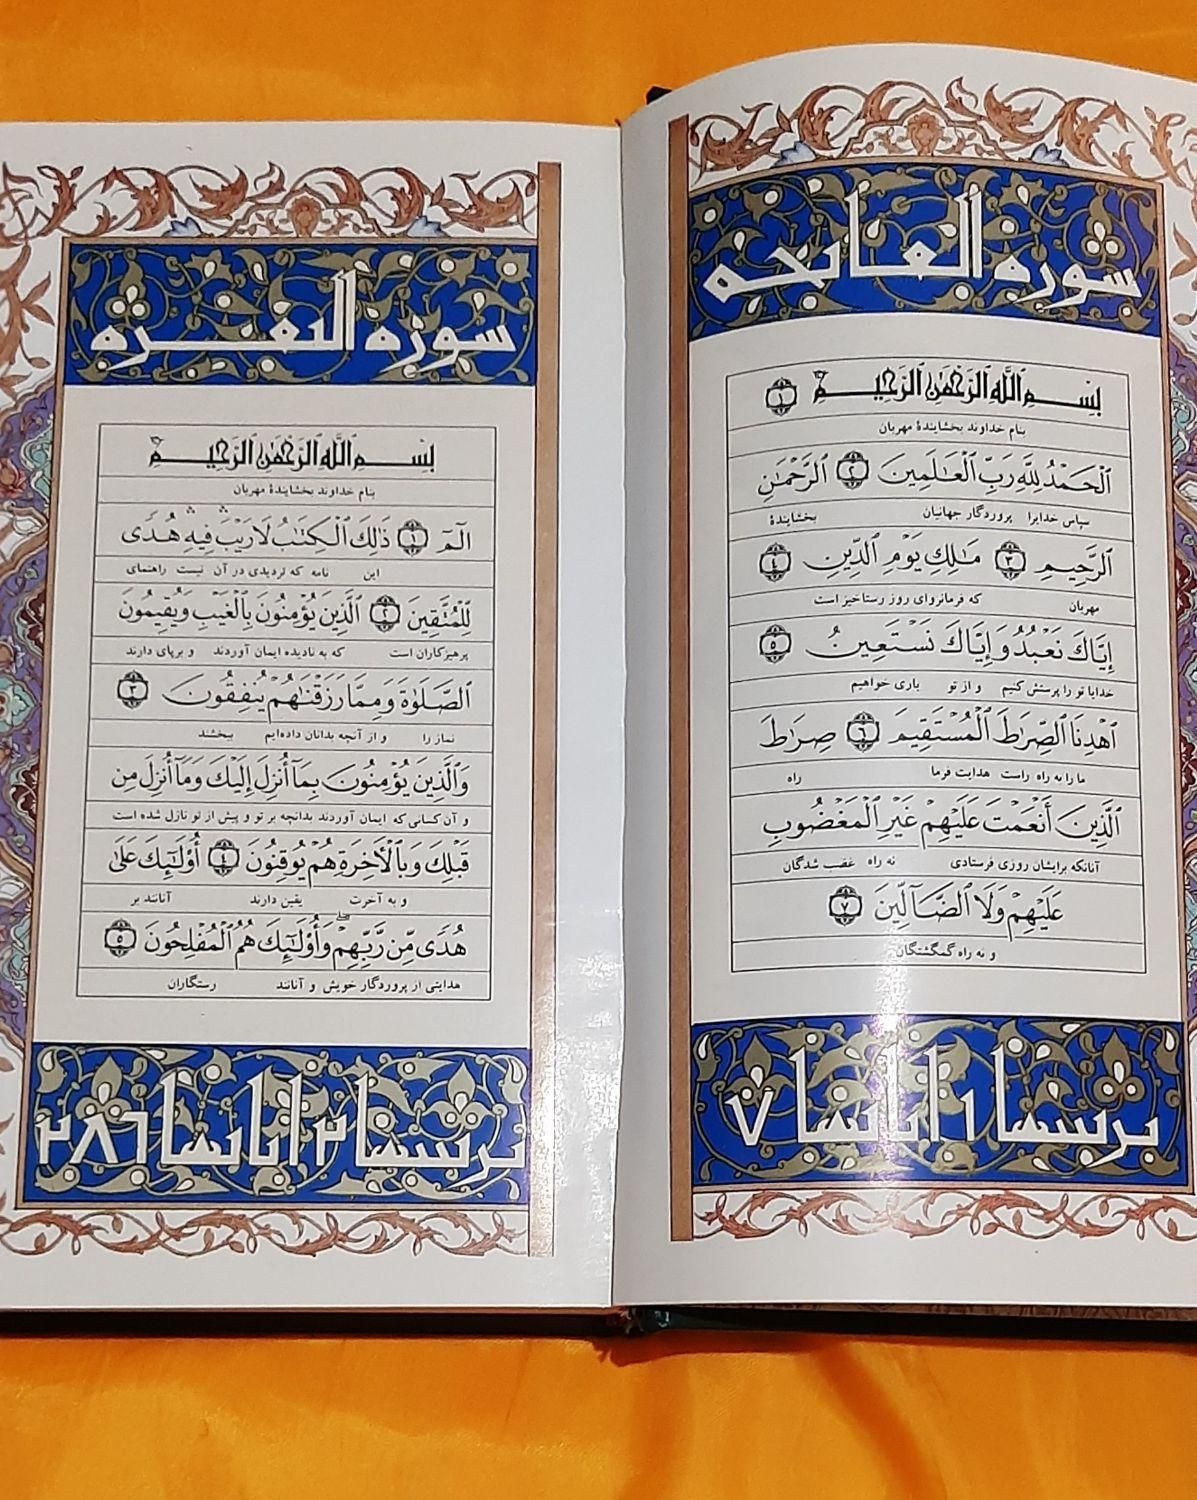 سوره الفاتحه
بِسْمِ ٱللَّهِ ٱلرَّحْمَٰنِ ٱلرَّحِيمِ ١
بنام خداوند بخشایندهٔ مهربان
ٱلْحَمْدُ لِلَّهِ رَبِّ ٱلْعَالَمِينَ ٢ ٱلرَّحْمَٰنِ
سپاس خدایرا پروردگار جهانیان بخشایندهٔ
ٱلرَّحِيمِ ٣ مَالِكِ يَوْمِ ٱلدِّينِ ٤
مهربان که فرمانروای روز رستاخیز است
إِيَّاكَ نَعْبُدُ وَإِيَّاكَ نَسْتَعِينُ ٥
خدایا تو را پرستش کنیم و از تو یاری خواهیم
ٱهْدِنَا ٱلصِّرَاطَ ٱلْمُسْتَقِيمَ ٦ صِرَاطَ
ما را به راه راست هدایت فرما راه
ٱلَّذِينَ أَنْعَمْتَ عَلَيْهِمْ غَيْرِ ٱلْمَغْضُوبِ
آنانکه برایشان روزی فرستادی نه راه غضب شدگان
عَلَيْهِمْ وَلَا ٱلضَّآلِّينَ ٧
و نه راه گمگشتگان
ترتيبها ١ آياتها ٧
سوره البقره
بِسْمِ ٱللَّهِ ٱلرَّحْمَٰنِ ٱلرَّحِيمِ
بنام خداوند بخشایندهٔ مهربان
الٓمٓ ١ ذَٰلِكَ ٱلْكِتَٰبُ لَا رَيْبَ ۛ فِيهِ ۛ هُدًى
این نامه که تردیدی در آن نیست راهنمای
لِلْمُتَّقِينَ ٢ ٱلَّذِينَ يُؤْمِنُونَ بِٱلْغَيْبِ وَيُقِيمُونَ
پرهیزکاران است که به نادیده ایمان آوردند و برپای دارند
ٱلصَّلَوٰةَ وَمِمَّا رَزَقْنَٰهُمْ يُنْفِقُونَ ٣
نماز را و از آنچه بدانان داده‌ایم ببخشند
وَٱلَّذِينَ يُؤْمِنُونَ بِمَآ أُنْزِلَ إِلَيْكَ وَمَآ أُنْزِلَ مِن
و آن کسانی که ایمان آوردند بدانچه بر تو و پیش از تو نازل شده است
قَبْلِكَ وَبِٱلْأَخِرَةِ هُمْ يُوقِنُونَ ٤ أُوْلَٰٓئِكَ عَلَىٰ
و به آخرت یقین دارند آنانند بر
هُدًى مِّن رَّبِّهِمْ ۖ وَأُوْلَٰٓئِكَ هُمُ ٱلْمُفْلِحُونَ ٥
هدایتی از پروردگار خویش و آنانند رستگاران
ترتيبها ٢ آياتها ٢٨٦